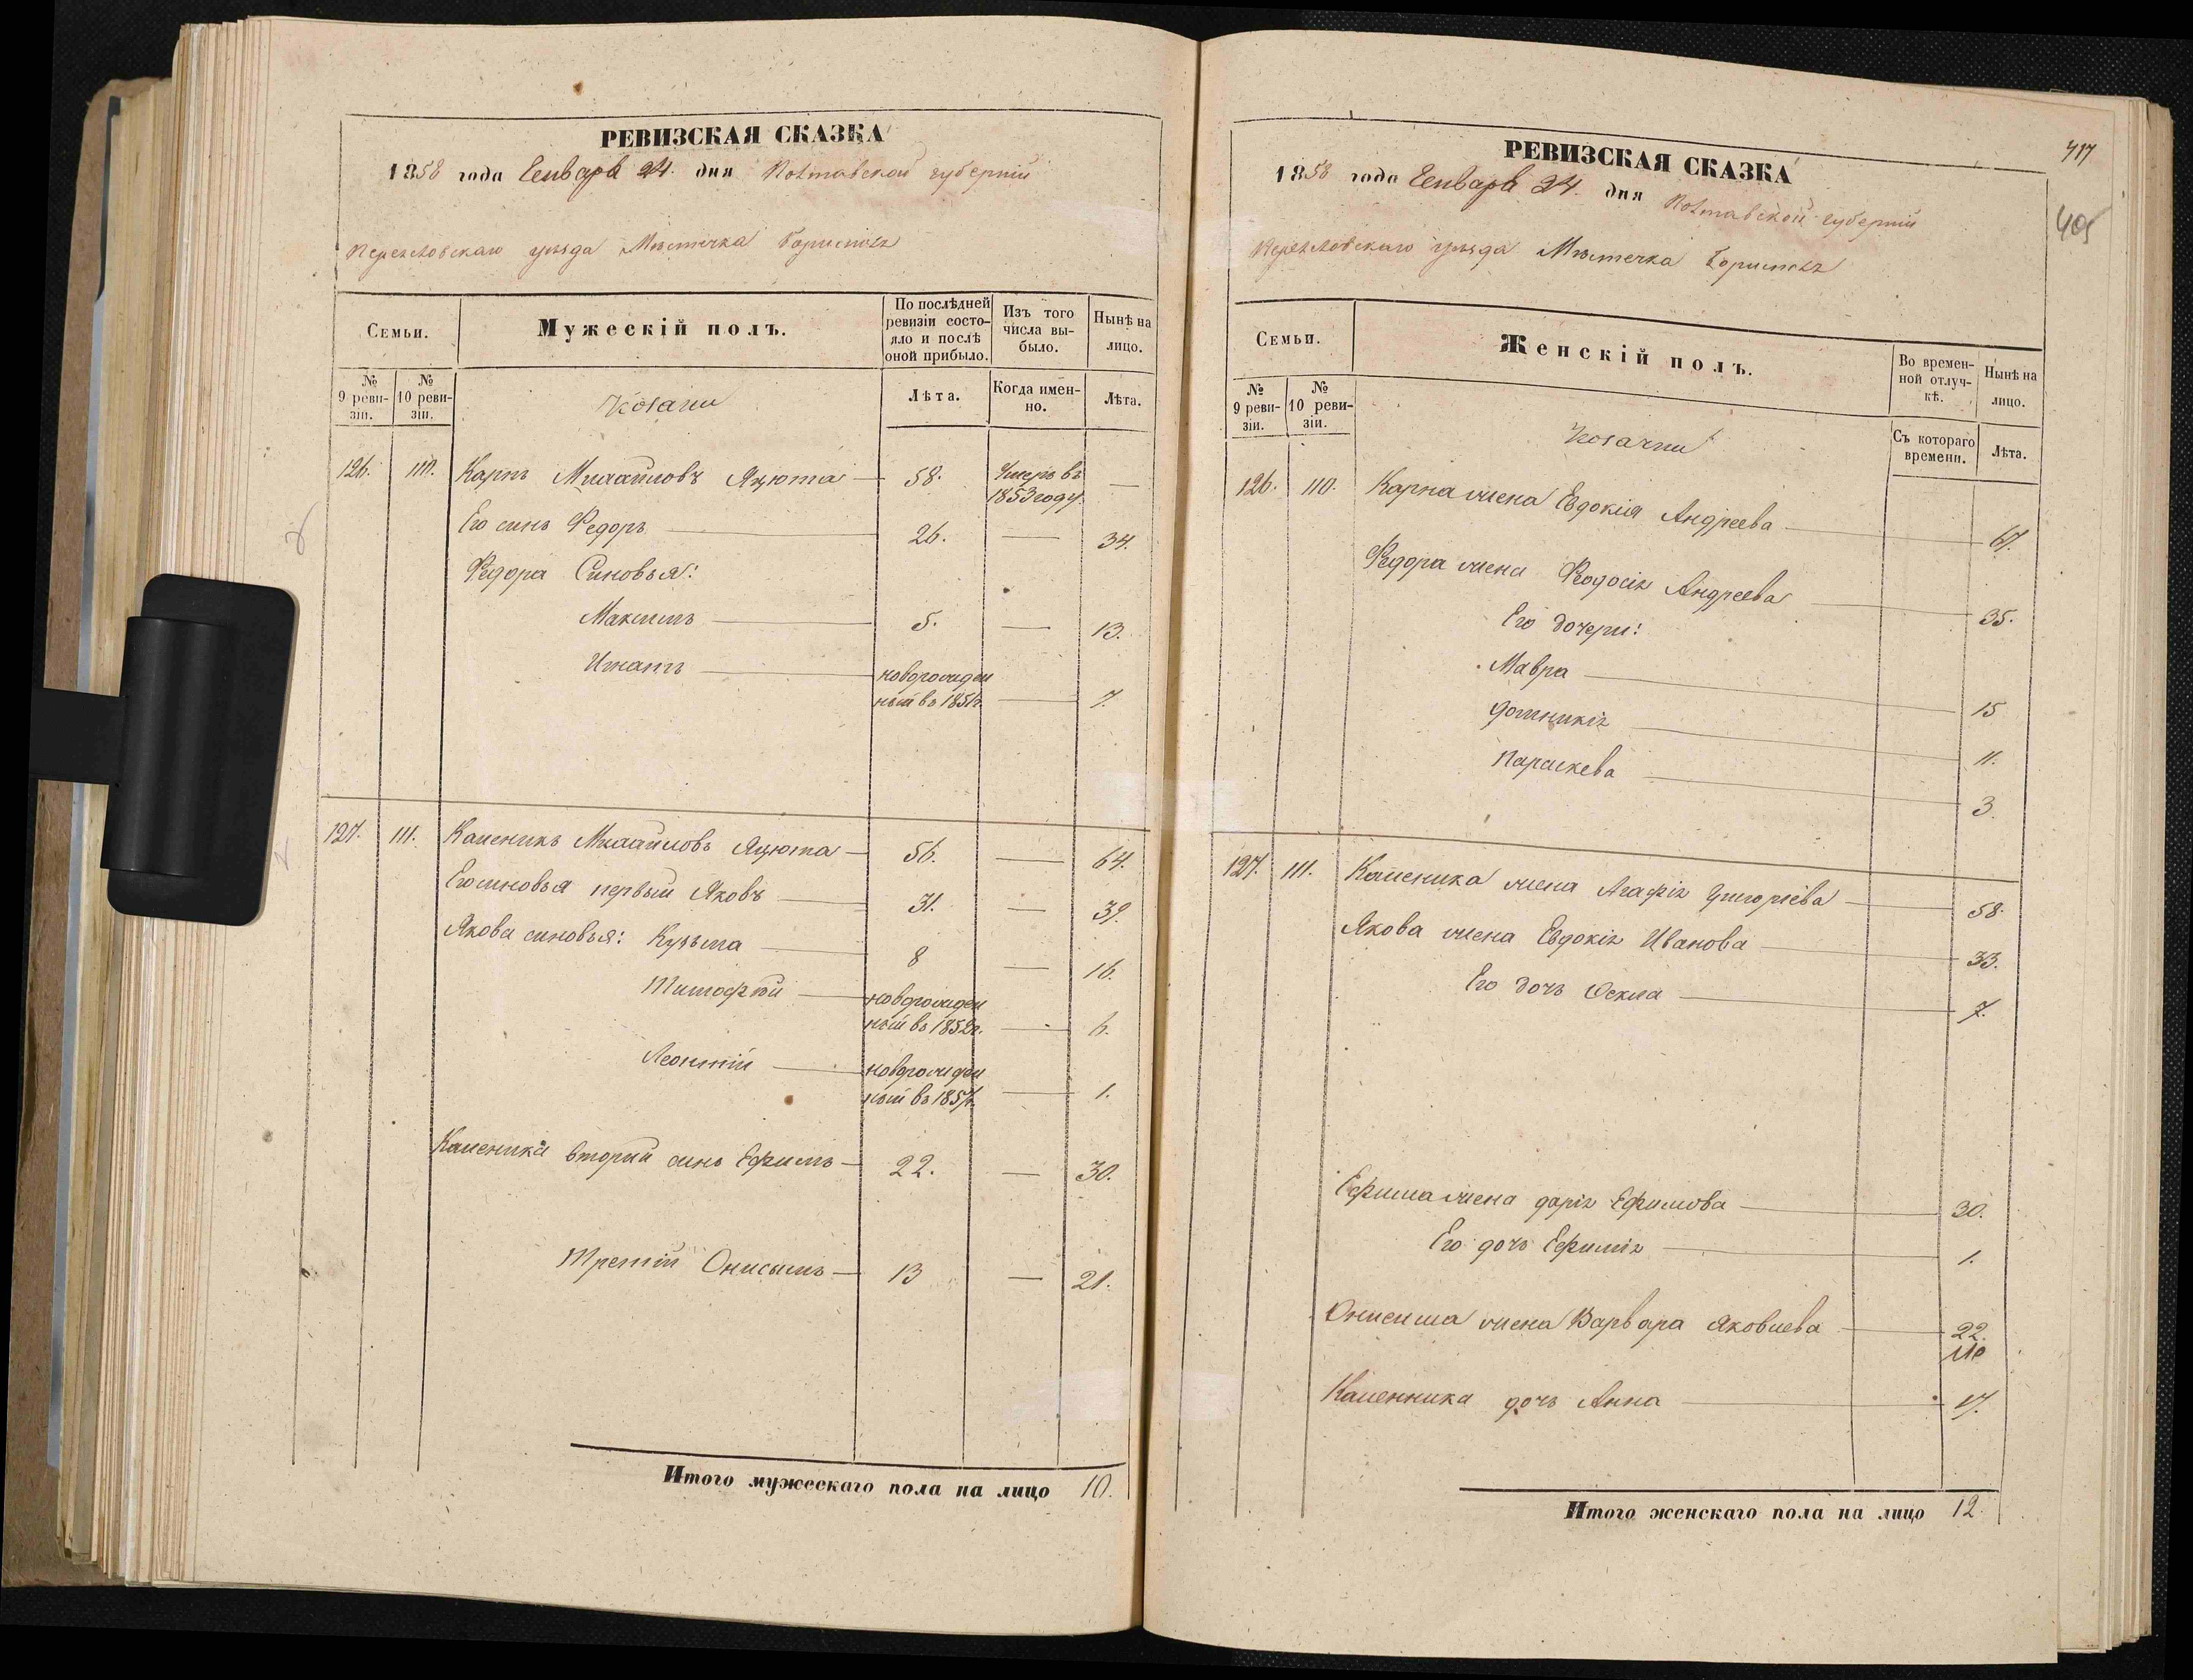 РЕВИЗСКАЯ СКАЗКА
1858 года Генваря 24. дня Полтавской губерніи
Переяловскаго уезда Мѣстечка Бориспол
Семьи.
Мужескій полъ.
По послѣдней ревизіи состояло и послѣ оной прибыло.
Изъ того числа выбыло.
Нынѣ на лицо.
№ 9 ревизіи.
№ 10 ревизіи.
Козаки
Лѣта.
Когда именно.
Лѣта.
126. 110. Карпъ Михайловъ Яцюта 58. Умеръ въ 1853 году. —
Его синъ Федоръ 26. — 34.
Федора Синовья:
Максимъ 5. — 13.
Игнатъ новорожден
ный въ 1851г. — 7.
127. 111. Каленикъ Михайловъ Яцюта 56. — 64.
Его синовья первый Яковъ 31. — 39.
Якова синовья: Кузьма 8 — 16.
Тимофѣй новорожден
ный въ 1852г. — 6.
Леонтій новорожден
ный въ 1857г. — 1.
Каленика вторий синъ Ефимъ 22. — 30.
Третій Онисимъ 13 — 21.
Итого мужескаго пола на лицо 10.
417
405
РЕВИЗСКАЯ СКАЗКА
1858 года Генваря 24. дня Полтавской губерніи
Переяловскаго уезда Мѣстечка Бориспол
Семьи.
Женскій полъ.
Во временной отлучкѣ.
Нынѣ на лицо.
№ 9 ревизіи.
№ 10 ревизіи.
Козачки
Съ котораго времени.
Лѣта.
126. 110. Карпа жена Евдокія Андреева 67.
Федора жена Феодосія Андреева 35.
Его дочери:
Мавра 15
Домникія 11.
Параскева 3.
127. 111. Каленика жена Агафія Григоріева 58.
Якова жена Евдокія Иванова 33.
Его дочь Фекла 7.
Ефима жена Дарія Ефимова 30.
Его дочь Ефимія 1.
Онисима жена Варвара Яковлева 22.
Каленника дочь Анна 17.
Итого женскаго пола на лицо 12.